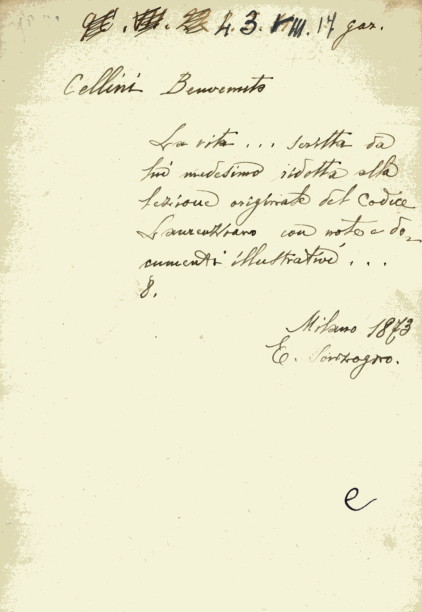 4. 3. VIII. 14 gaz.
Cellini Benvenuto
La vita ... scritta da
lui medesimo ridotta alla
lezione originale del Codice
Laurenziano con note e do-
cumenti illustrativi ...
8.
Milano 1873
E. Sonzogno.
e